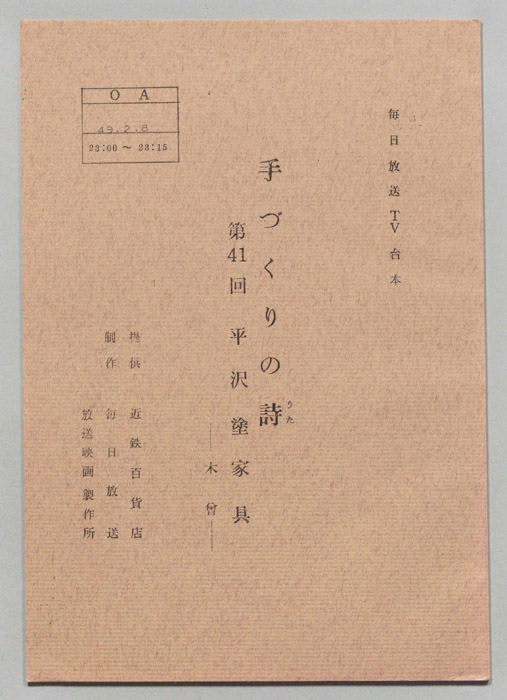 毎日放送TV台本
手づくりの詩
うた
第41回 平沢塗家具
―木曾―
OA
49.2.8
23:00～23:15
提供 近鉄百貨店
制作 毎日放送
放送映画製作所